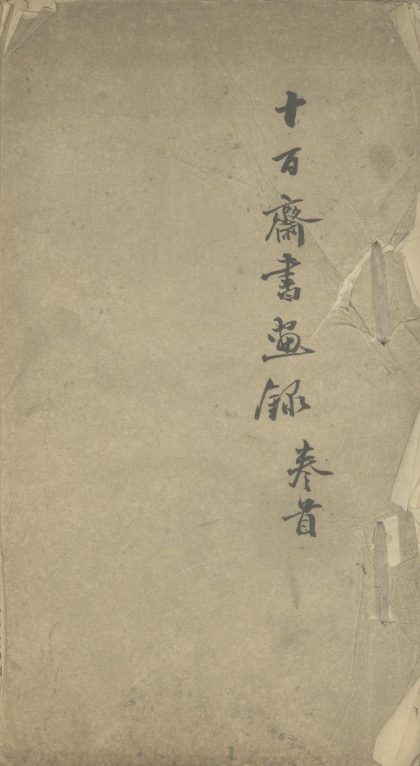 十百齋書畫錄 卷首